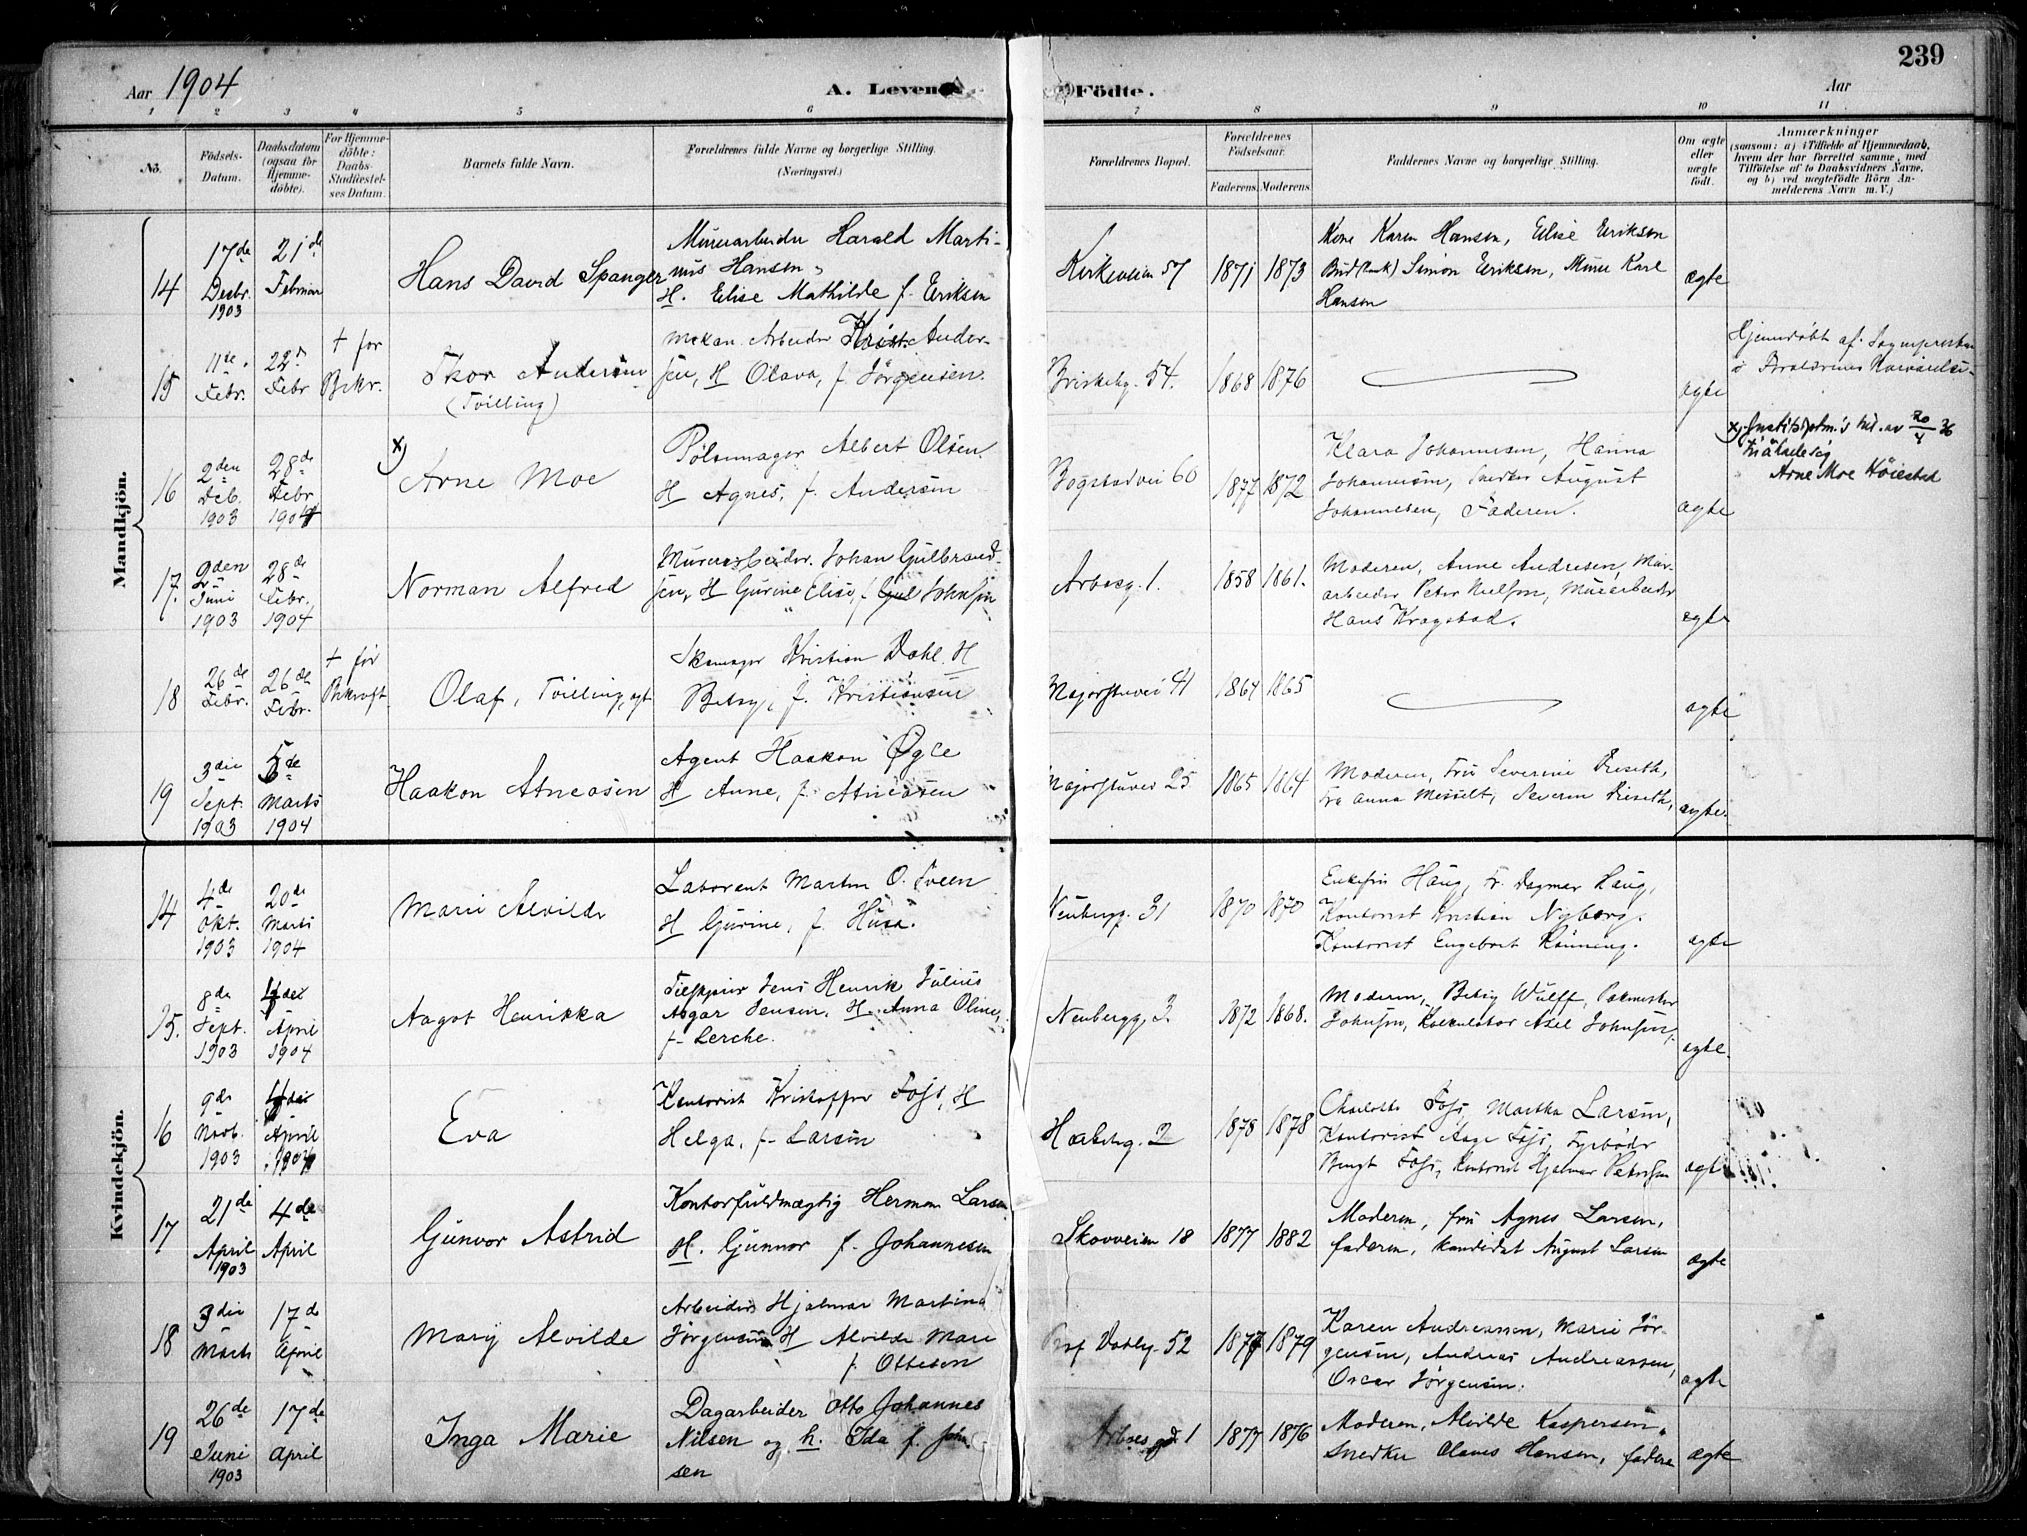 239
Aar 1904
A. Levende
Fødte.
Aar
1 2 3 4 5 6 7 8 9 10 11
No.
Fødsels-
Datum.
Daabsdatum
(ogsaa for
Hjemme-
døbte).
For Hjemme-
døbte:
Daabs-
Stadfæstel-
ses Datum.
Barnets fulde Navn.
Forældrenes fulde Navne og borgerlige Stilling.
(Næringsvei.)
Forældrenes Bopæl.
Forældrenes
Fødselsaar.
Faderens. Moderens.
Faddernes Navne og borgerlige Stilling.
Om ægte
eller
uægte
født.
Anmærkninger
(saasom: a) i Tilfælde af Hjemmedaab,
hvem der har forrettet samme, med
Tilføielse af to Daabsvidners Navne,
og b) ved uægtefødte Børn An-
melderens Navn m. V.)
Mandkjön.
14
17de
Decbr.
1903
21de
Februar
Hans David Spanger
Murerarbeider Harald Marti-
nus Hansen
H. Elise Mathilde f. Eriksen
Kirkeveien 57
1871 1873
Kone Karen Hansen, Elise Eriksen
Simon Eriksen, Murer Karl
Hansen
ægte
15
11te
Febr.
22de
Febr
+ før
Bekr.
Thor Andersen
(Tvilling)
Mekan. Arbeider Krist. Ander-
sen, H Olava, f. Jørgensen.
Briskeby. 54.
1868 1876
ægte
Hjemmedøbt af Sognepresten
i Forældrenes Nærværelse.
16
2den
Feb.
1903
28de
Febr
1904
x)
Arne Moe
Pølsemager Albert Olsen.
H Agnes, f. Andersen
Bogstadvei 60
1877 1872
Klara Johannesen, Hanna
Johannesen, Snedker August
Johannesen, Faderen.
ægte
x) Justitsdptm's bev. av 20/4 36
til å kalle sig
Arne Moe Høiestad
17.
2den
Juni
1903
28de
Febr.
1904
Norman Alfred
Murerarbeider. Johan Gulbrand-
sen, H Gurine Elise, f. Johnsen
Arbosg. 1.
1858 1861.
Moderen, Anne Andresen, Mur-
arbeider Peter Nielsen, Murarbeider
Hans Kragstad.
ægte
18
26de
Febr.
26de
Febr.
+ før
Bekræft.
Olaf, Tvilling, ægt
Skomager Kristian Dahl. H
Betsy, f. Kristiansen
Majorstuvei 41
1864 1865
ægte
19
3die
Sept.
1903
5de
Marts
1904
Haakon Atneosen
Agent Haakon Øgle
H Anne, f. Atneosen
Majorstuvei 25
1865 1864
Moderen, Fru Severine Preseth,
Fra Anna Messelt, Severin Preseth,
ægte.
Kvindekjön.
14
4de
Okt.
1903
20de
Marts
1904
Marie Alvilde
Laborant Martin O. Tveen
H Gurine, f. Husa.
Neubergg. 31
1870 1870
Enkefru Haug, Fr. Dagmar Haug,
Kontorist Kristian Nyborg.
Kontorist Engebret Rønning.
ægte
15.
8de
Sept.
1903
4de
April
1904
Aagot Henrikka
Tilskjærer Jens Henrik Julius
Asgar Jensen. H. Anna Oline,
f. Lerche.
Neubergg. 3.
1872 1868.
Moderen, Betsy Wulff,
Johnsen, Kalkulator Axel Johnsen,
ægte.
16
9de
Novb.
1903
4de
April
1904
Eva
Kontorist Kristoffer Foss, H
Helga, f. Larsen
2
1878 1878
Charlotte Foss, Martha Larsen,
Kontorist Aage Foss, Fyrbøder
Bengt Foss, Kontorist Hjalmar Petersen
ægte
17
21de
April
1903
4de
April
Gunvor Astrid
Kontorfuldmægtig Herman Larsen
H. Gunnor f. Johannesen
Skovveien 18
1877 1882
Moderen, fru Agnes Larsen,
faderen, kandidat August Larsen
ægte
18
3die
Marts
17de
April
Mary Alvilde
Arbeider Hjalmar Martin
Jørgensen H Alvilde Marie
f. Ottesen
Prof Dahlsg. 52
1877 1879
Karen Andreassen, Marie Jør-
gensen, Andreas Andreassen,
Oscar Jørgensen.
ægte
19
26de
Juni
1903
17de
April
Inga Marie
Dagarbeider Otto Johannes
Nilsen og h. Ida f. Johan-
sen
Arbosgd. 1
1877 1876
Moderen, Alvilde Kaspersen,
Snedker Olaves Hansen, faderen
ægte